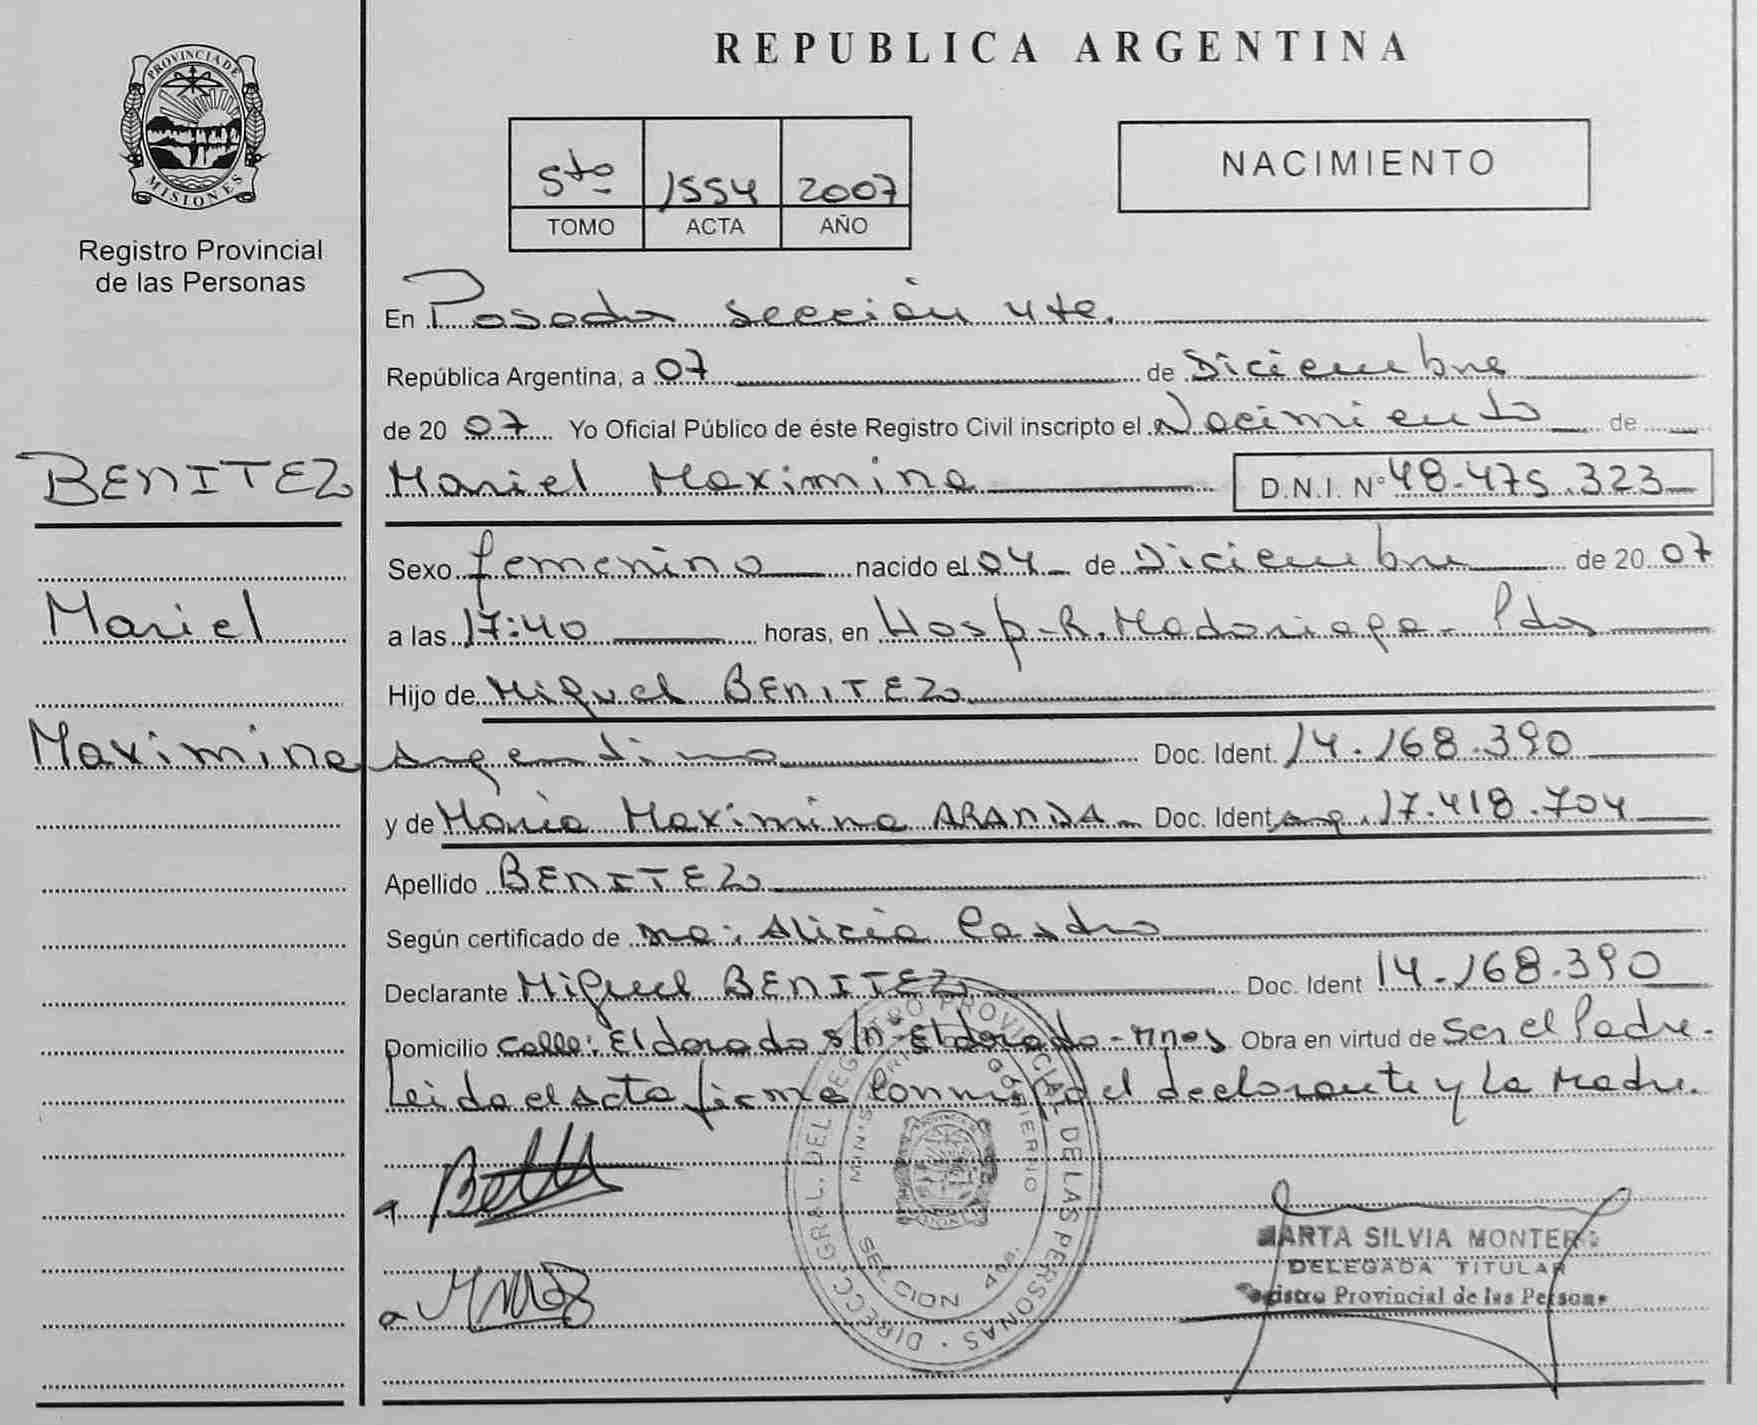 REPUBLICA ARGENTINA
PROVINCIA DE
MISIONES
Registro Provincial
de las Personas
5to 1554 2007
TOMO ACTA AÑO
NACIMIENTO
En Posadas sección 4ta.
República Argentina, a 07 de Diciembre
de 2007 Yo Oficial Público de éste Registro Civil inscripto el Nacimiento de
BENITEZ Mariel Maximina D.N.I. Nº 48.475.323
Sexo femenino nacido el 04 de Diciembre de 2007
Mariel
a las 17:40 horas, en Hosp. R. Madariaga - Pdas
Hijo de Miguel BENITEZ
Maximina
Argentino Doc. Ident. 14.168.390
y de María Maximina ARANDA Doc. Ident arg. 17.418.704
Apellido BENITEZ
Según certificado de Alicia Castro
Declarante Miguel BENITEZ Doc. Ident 14.168.390
Domicilio calle: Eldorado s/n - Eldorado - Mnes Obra en virtud de Ser el Padre.
Leida el acta firma conmigo el declarante y la Madre.
DIRECC. GRAL. DEL REGISTRO PROVINCIAL DE LAS PERSONAS
GOBIERNO
MARTA SILVIA MONTERO
DELEGADA TITULAR
Registro Provincial de las Personas